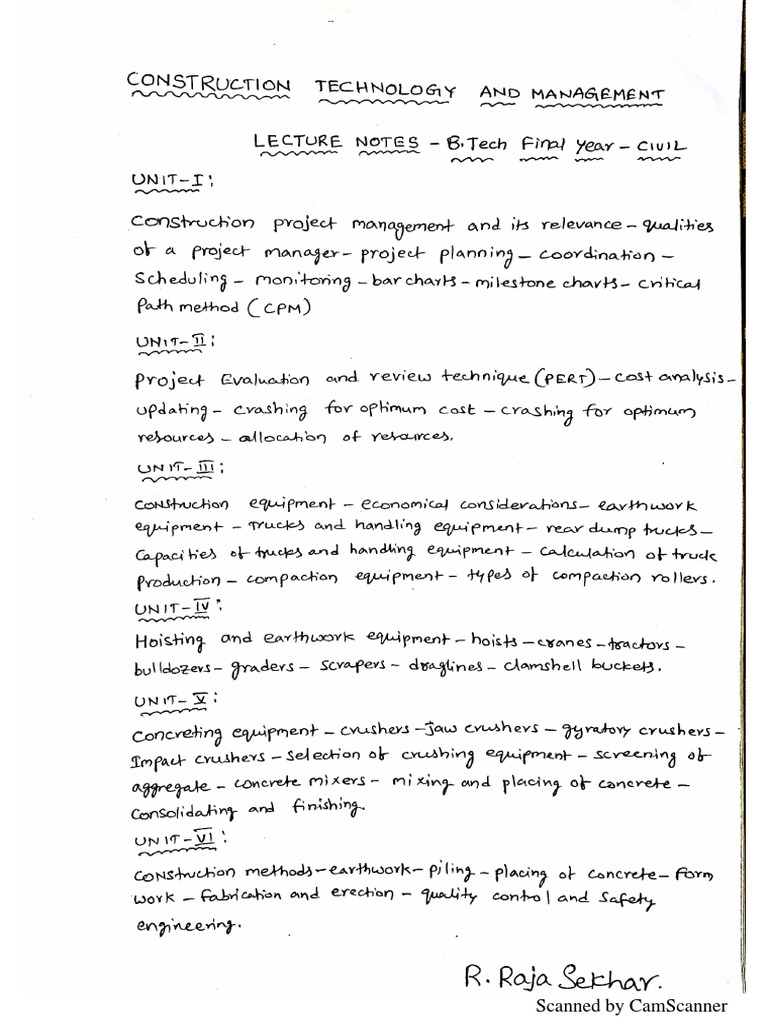 CONSTRUCTION TECHNOLOGY AND MANAGEMENT
LECTURE NOTES - B.Tech Final Year - CIVIL
UNIT-I:
Construction project management and its relevance - qualities
of a project manager - project planning - coordination -
Scheduling - monitoring - bar charts - milestone charts - critical
Path method (CPM)
UNIT-II:
Project Evaluation and review technique (PERT) - cost analysis -
updating - crashing for optimum cost - crashing for optimum
resources - allocation of resources.
UNIT-III:
Construction equipment - economical considerations - earthwork
equipment - Trucks and handling equipment - rear dump trucks -
Capacities of trucks and handling equipment - calculation of truck
production - compaction equipment - types of compaction rollers.
UNIT-IV:
Hoisting and earthwork equipment - hoists - cranes - tractors -
bulldozers - graders - scrapers - draglines - clamshell buckets.
UNIT-V:
Concreting equipment - crushers - jaw crushers - gyratory crushers -
Impact crushers - selection of crushing equipment - screening of
aggregate - concrete mixers - mixing and placing of concrete -
Consolidating and finishing.
UNIT-VI:
Construction methods - earthwork - piling - placing of concrete - form
work - fabrication and erection - quality control and Safety
engineering.
R. Raja Sekhar.
Scanned by CamScanner